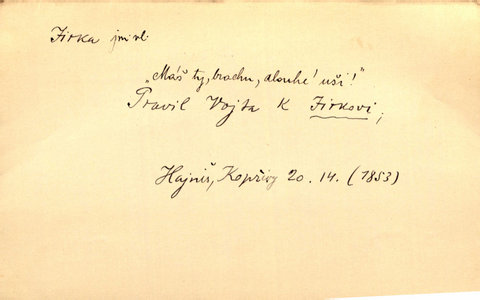 Jirka jm. vl.
„Máš ty, brachu, dlouhé uši!"
Pravil Vojta k Jirkovi;
Hajniš, Kopřivy 20. 14. (1853)